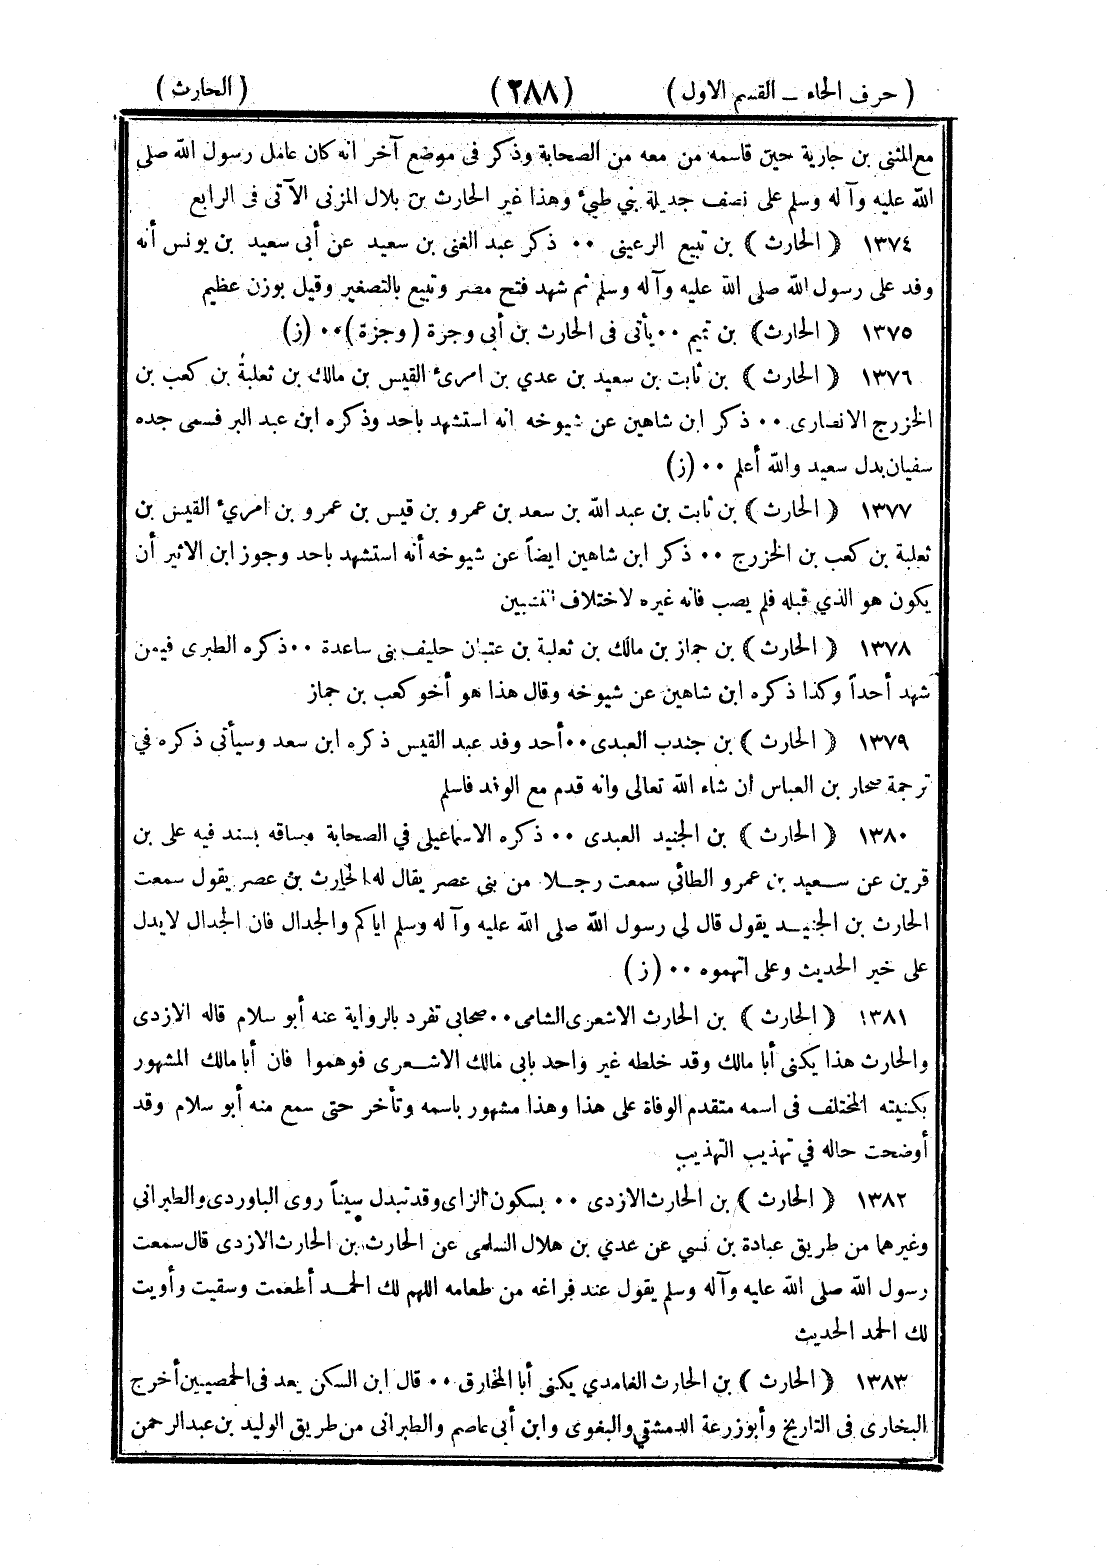 ( حرف الحاء ــ القسم الاول ) (٢٨٨) ( الحارث )
مع المثنى بن جارية حين قاسمه من معه من الصحابة وذكر فى موضع آخر انه كان عامل رسول الله صلى
الله عليه وآله وسلم على نصف جديلة بني طيئ وهذا غير الحارث بن بلال المزنى الآتى فى الرابع
١٣٧٤ ﴿ الحارث ﴾ بن تبيع الرعينى ٠٠ ذكر عبد الغنى بن سعيد عن أبى سعيد بن يونس أنه
وفد على رسول الله صلى الله عليه وآله وسلم ثم شهد فتح مصر وتبيع بالتصغير وقيل بوزن عظيم
١٣٧٥ ﴿ الحارث﴾ بن تميم ٠٠ يأتى فى الحارث بن أبي وجرة ( وجزة )٠٠ (ز)
١٣٧٦ ﴿ الحارث ﴾ بن ثابت بن سعيد بن عدي بن امرئ القيس بن مالك بن ثعلبة بن كعب بن
الخزرج الانصارى ٠٠ ذكر ابن شاهين عن شيوخه انه استشهد باحد وذكره ابن عبد البر فسمى جده
سفيان بدل سعيد والله أعلم ٠٠ (ز)
١٣٧٧ ﴿ الحارث ﴾ بن ثابت بن عبد الله بن سعد بن عمرو بن قيس بن عمرو بن امرئ القيس بن
ثعلبة بن كعب بن الخزرج ٠٠ ذكر ابن شاهين ايضاً عن شيوخه أنه استشهد باحد وجوز ابن الاثير أن
يكون هو الذي قبله فلم يصب فانه غيره لاختلاف النسبين
١٣٧٨ ﴿ الحارث ﴾ بن جماز بن مالك بن ثعلبة بن عتبان حليف بنى ساعدة ٠٠ ذكره الطبرى فيمن
شهد أحداً وكذا ذكره ابن شاهين عن شيوخه وقال هذا هو أخو كعب بن جماز
١٣٧٩ ﴿ الحارث ﴾ بن جندب العبدى ٠٠ أحد وفد عبد القيس ذكره ابن سعد وسيأتى ذكره في
ترجمة صحار بن العباس ان شاء الله تعالى وانه قدم مع الوفد فاسلم
١٣٨٠ ﴿ الحارث ﴾ بن الجنيد العبدى ٠٠ ذكره الاسماعيلى في الصحابة وساقه بسند فيه على بن
قرين عن سعيد بن عمرو الطائي سمعت رجلا من بنى عصر يقال له الحارث بن عصر يقول سمعت
الحارث بن الجنيد يقول قال لي رسول الله صلى الله عليه وآله وسلم اياكم والجدال فان الجدال لايدل
على خير الحديث وعلى اتهموه ٠٠ (ز)
١٣٨١ ﴿ الحارث ﴾ بن الحارث الاشعرى الشامى ٠٠ صحابى تفرد بالرواية عنه أبو سلام قاله الازدى
والحارث هذا يكنى أبا مالك وقد خلطه غير واحد بابى مالك الاشعرى فوهموا فان أبا مالك المشهور
بكنيته المختلف فى اسمه متقدم الوفاة على هذا وهذا مشهور باسمه وتأخر حتى سمع منه أبو سلام وقد
أوضحت حاله في تهذيب التهذيب
١٣٨٢ ﴿ الحارث ﴾ بن الحارث الازدى ٠٠ بسكون الزاى وقد تبدل سيناً روى الباوردى والطبرانى
وغيرهما من طريق عبادة بن نسي عن عدي بن هلال السلمى عن الحارث بن الحارث الازدى قال سمعت
رسول الله صلى الله عليه وآله وسلم يقول عند فراغه من طعامه اللهم لك الحمد أطعمت وسقيت وأويت
لك الحمد الحديث
١٣٨٣ ﴿ الحارث ﴾ بن الحارث الغامدي يكنى أبا المخارق ٠٠ قال ابن السكن يعد فى الحمصيين أخرج
البخارى فى التاريخ وأبو زرعة الدمشقي والبغوى وابن أبى عاصم والطبرانى من طريق الوليد بن عبد الرحمن